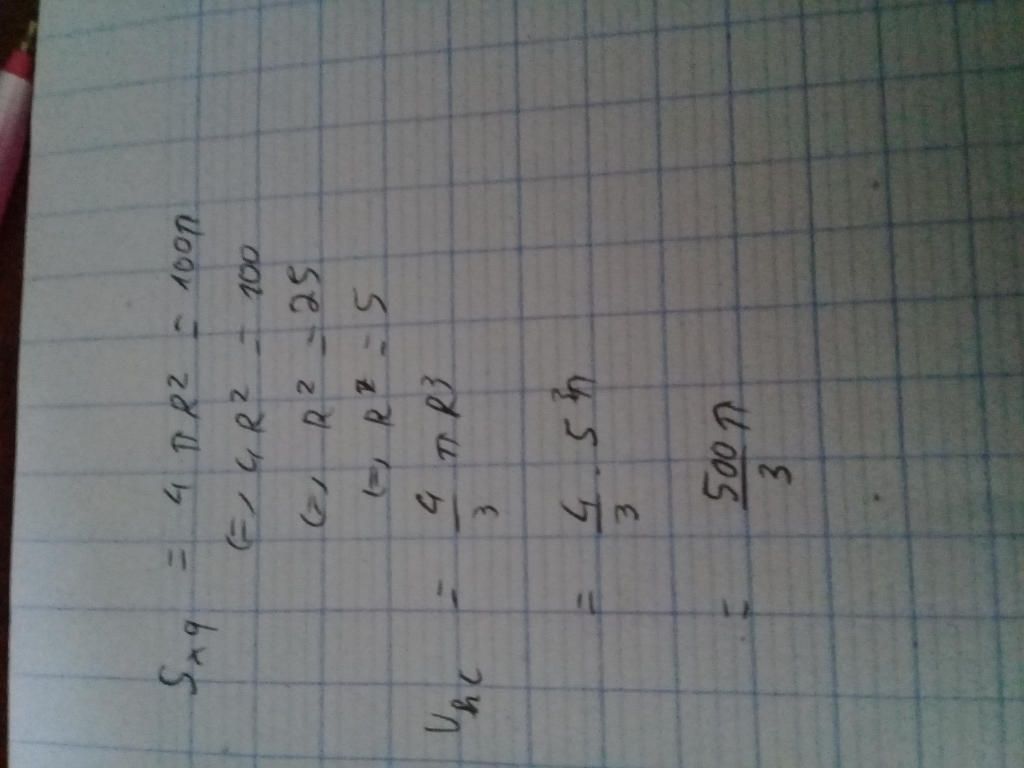 Sxq = 4πR² = 100π
(=) 4R² = 100
(=) R² = 25
(=) R = 5
Vhc = 4/3 πR³
= 4/3 . 5³π
= 500π/3